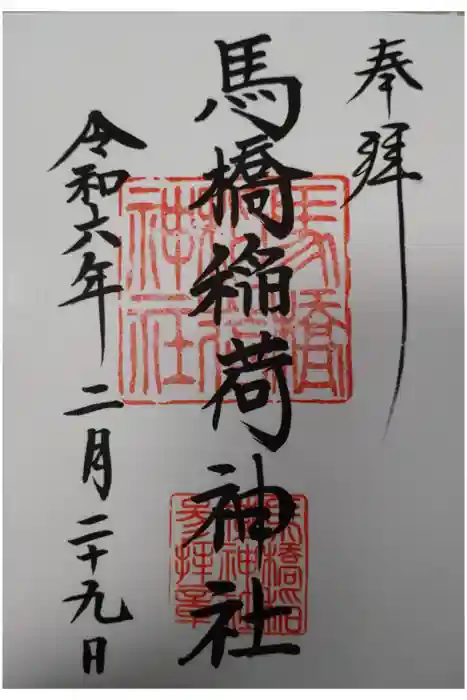 奉拝
馬橋稲荷神社
令和六年二月二十九日
馬橋
稲荷
神社
馬橋稲
荷神社
参拝章